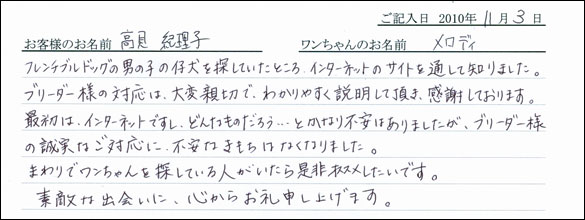 ご記入日 2010年 11月 3日
お客様のお名前 高見 紀理子 ワンちゃんのお名前 メロディ
フレンチブルドッグの男の子の仔犬を探していたところ、インターネットのサイトを通して知りました。
ブリーダー様の対応は、大変親切で、わかりやすく説明して頂き、感謝しております。
最初は、インターネットですし、どんなものだろう…とかなり不安はありましたが、ブリーダー様
の誠実なご対応に、不安なきもちはなくなりました。
まわりでワンちゃんを探している人がいたら是非オススメしたいです。
素敵な出会いに、心からお礼申し上げます。